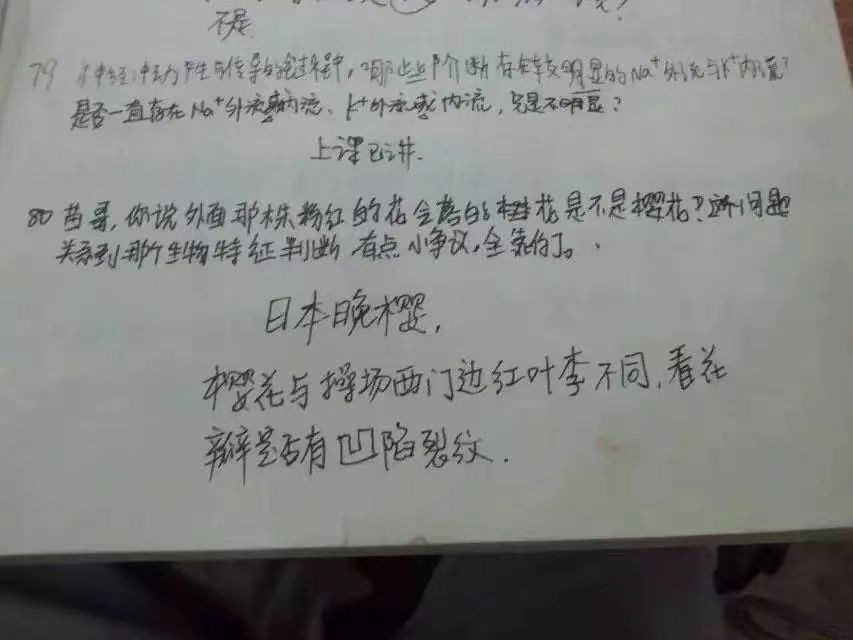 不是
79 神经冲动产生与传导的过程中,哪些阶断存在较明显的Na⁺外流与K⁺内流?
是否一直存在Na⁺外流或内流、K⁺外流或内流,只是不明显?
上课已讲.
80 苗哥,你说外面那株粉红的花会落的樱花是不是樱花?这个问题
关系到那个生物特征判断 有点小争议,全靠你了。
日本晚樱,
樱花与操场西门边红叶李不同,看花
瓣是否有凹陷裂纹.